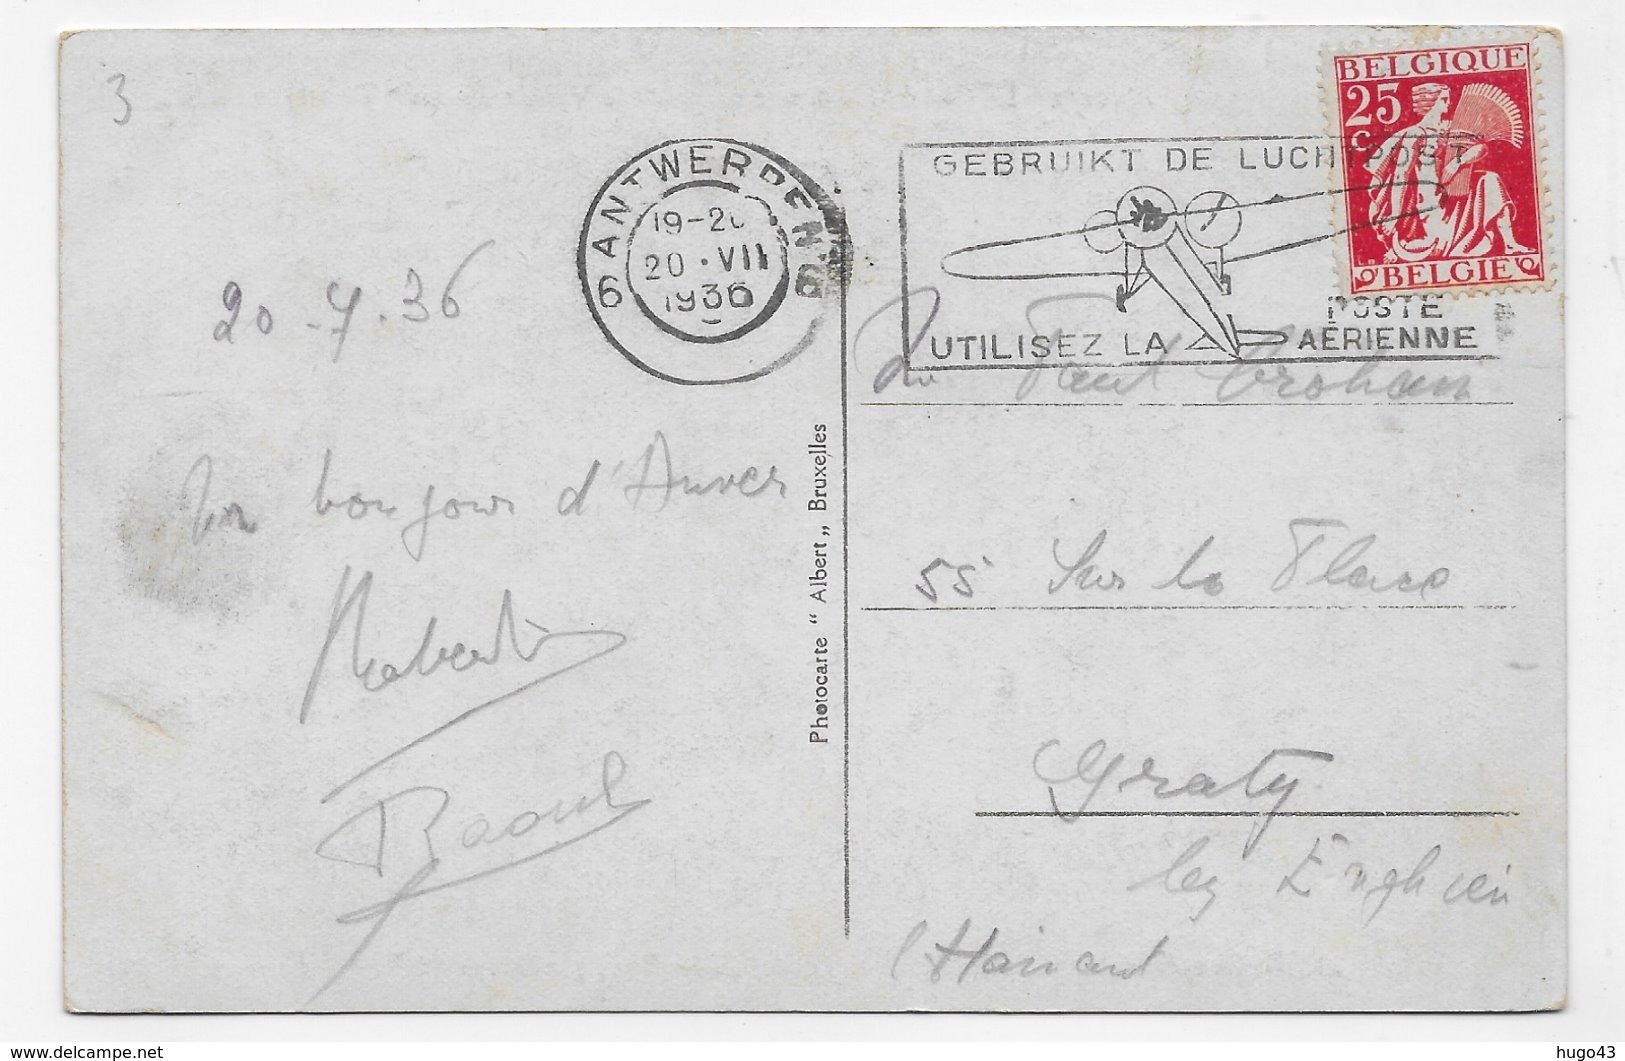 3
BELGIQUE
25
C
BELGIE
6 ANTWERPEN 6
19-20
20 · VII
1936
GEBRUIKT DE LUCHTPOST
UTILISEZ LA
POSTE
AÉRIENNE
20 - 7 . 36
Un bonjour d'Anver
Raoul
Photocarte “ Albert „ Bruxelles
Paul
55 Sur la Place
Graty
lez Enghien
(Hainaut
hugo43